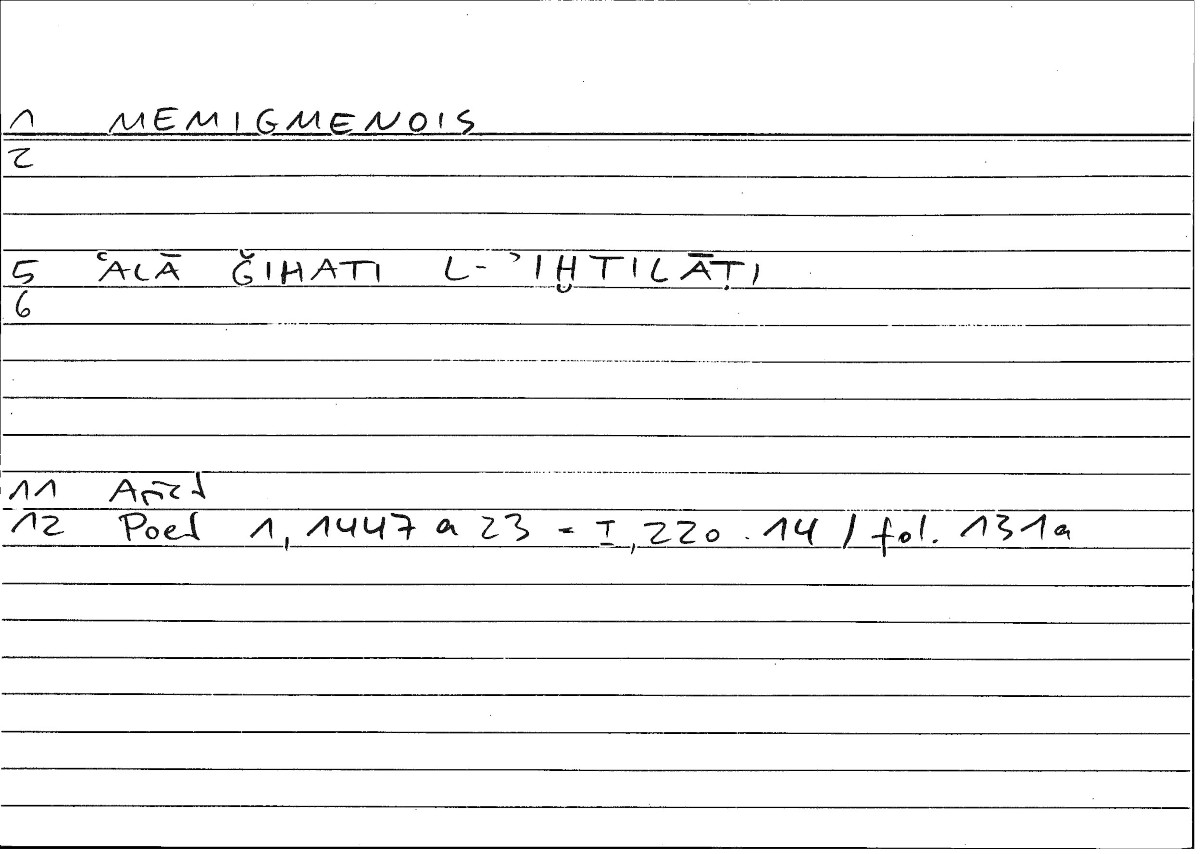 1 MEMIGMENOIS
2
5 ʿALĀ ǦIHATI L-ʾIḪTILĀṬI
6
11 Arist
12 Poet 1, 1447 a 23 = I, 220.14 / fol. 131a